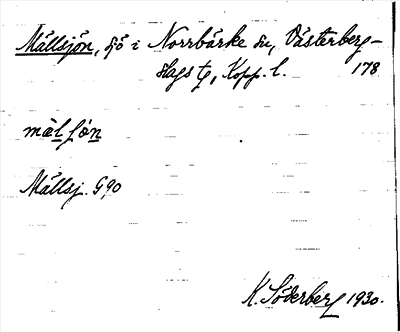 Mällsjön, sjö i Norrbärke sn, Västerberg-
slags tg, Kopp. l. 178
mälʃön
Mällsj. G90
K. Söderberg 1930.